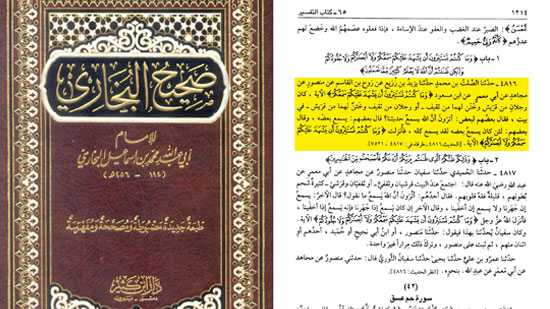 صحيح البخاري
للإمام
أبي عبد الله محمد بن إسماعيل البخاري
(١٩٤ - ٢٥٦ هـ)
طبعة جديدة مضبوطة ومصححة ومفهرسة
دار ابن كثير
دمشق - بيروت
٦٥ - كتاب التفسير
١٢١٤
أَحْسَنُ﴾: الصبرُ عند الغضب والعفو عندَ الإساءة، فإذا فعلوه عصمهُمُ الله وخَضَع لهم
عدوُّهم ﴿كَأَنَّهُ وَلِيٌّ حَمِيمٌ﴾.
١ - باب ﴿وَمَا كُنْتُمْ تَسْتَتِرُونَ أَنْ يَشْهَدَ عَلَيْكُمْ سَمْعُكُمْ وَلَا أَبْصَارُكُمْ وَلَا جُلُودُكُمْ
وَلَكِنْ ظَنَنْتُمْ أَنَّ اللَّهَ لَا يَعْلَمُ كَثِيرًا مِمَّا تَعْمَلُونَ﴾
٤٨١٦ - حدَّثنا الصَّلْتُ بن محمدٍ حدَّثنا يزيدُ بن زُريع عن رَوح بن القاسم عن منصور عن
مجاهدٍ عن أبي معمر عن ابن مسعود ﴿وَمَا كُنْتُمْ تَسْتَتِرُونَ أَنْ يَشْهَدَ عَلَيْكُمْ سَمْعُكُمْ﴾ الآية، كان
رجلان من قُريش وخَتَنٌ لهما من ثقيفَ - أو رجلانِ من ثقيف وخَتَنٌ لهما من قُريش - في
بيت، فقال بعضُهم لبعض: أتُرَوْنَ أنَّ الله يسمعُ حديثنا؟ قال بعضهم: يسمعُ بعضَه، وقال
بعضهم: لئن كان يسمعُ بعضَه لقد يسمع كله، فأُنزلَت ﴿وَمَا كُنْتُمْ تَسْتَتِرُونَ أَنْ يَشْهَدَ عَلَيْكُمْ
سَمْعُكُمْ وَلَا أَبْصَارُكُمْ﴾ الآية. [الحديث ٤٨١٦ - طرفاه في: ٤٨١٧، ٧٥٢١]
٢ - باب ﴿وَذَلِكُمْ ظَنُّكُمُ الَّذِي ظَنَنْتُمْ بِرَبِّكُمْ أَرْدَاكُمْ فَأَصْبَحْتُمْ مِنَ الْخَاسِرِينَ﴾
٤٨١٧ - حدَّثنا الحُميديُّ حدَّثنا سفيانُ حدَّثنا منصورٌ عن مجاهد عن أبي مَعمرٍ عن
عبد الله رضيَ الله عنه قال: اجتمعَ عندَ البيت قُرشيانِ وثَقَفيٌّ - أو ثَقفيّان وقُرشيٌّ - كثيرةٌ شحم
بطونهم، قليلةٌ فقهُ قلوبهم. فقال أحدُهم: أتُرَونَ أنَّ الله يَسمعُ ما نقول؟ قال الآخرُ: يسمعُ
إن جهَرنا ولا يَسمعُ إن أخفَينا، وقال الآخر إن كان يَسمعُ إذا جَهَرنا فإنه يسمعُ إذا أخفَينا.
فأنزلَ اللهُ عزَّ وجلَّ ﴿وَمَا كُنْتُمْ تَسْتَتِرُونَ أَنْ يَشْهَدَ عَلَيْكُمْ سَمْعُكُمْ وَلَا أَبْصَارُكُمْ وَلَا جُلُودُكُمْ﴾ الآية.
وكان سفيانُ يُحدِّثنا بهذا فيقول: حدَّثنا منصور، أو ابنُ أبي نجيح أو حُمَيد، أحدُهم أو
اثنان منهم، ثم ثَبتَ على منصور، وتركَ ذلك مراراً غيرَ واحدة.
حدَّثنا عمرو بن عليٍّ حدَّثنا يحيى حدَّثنا سفيانُ الثَّوريُّ قال: حدثني منصورٌ عن مجاهد
عن أبي مَعمَر عن عبدِ الله. بنحوِه. [انظر الحديث: ٤٨١٦]
(٤٢)
سورة حم عسق